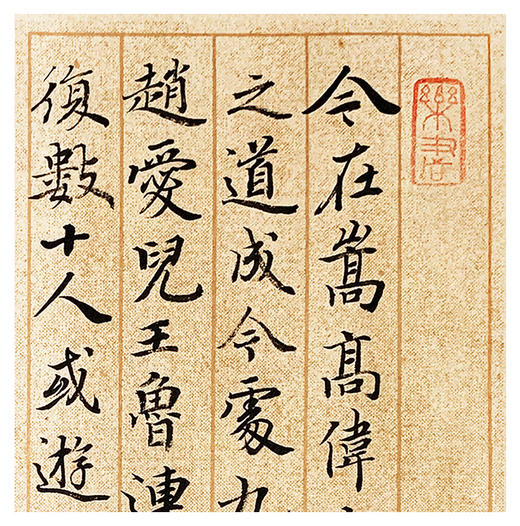 樂
今在嵩髙偉
之道成今處九
趙愛兒王魯連
復數十人或遊